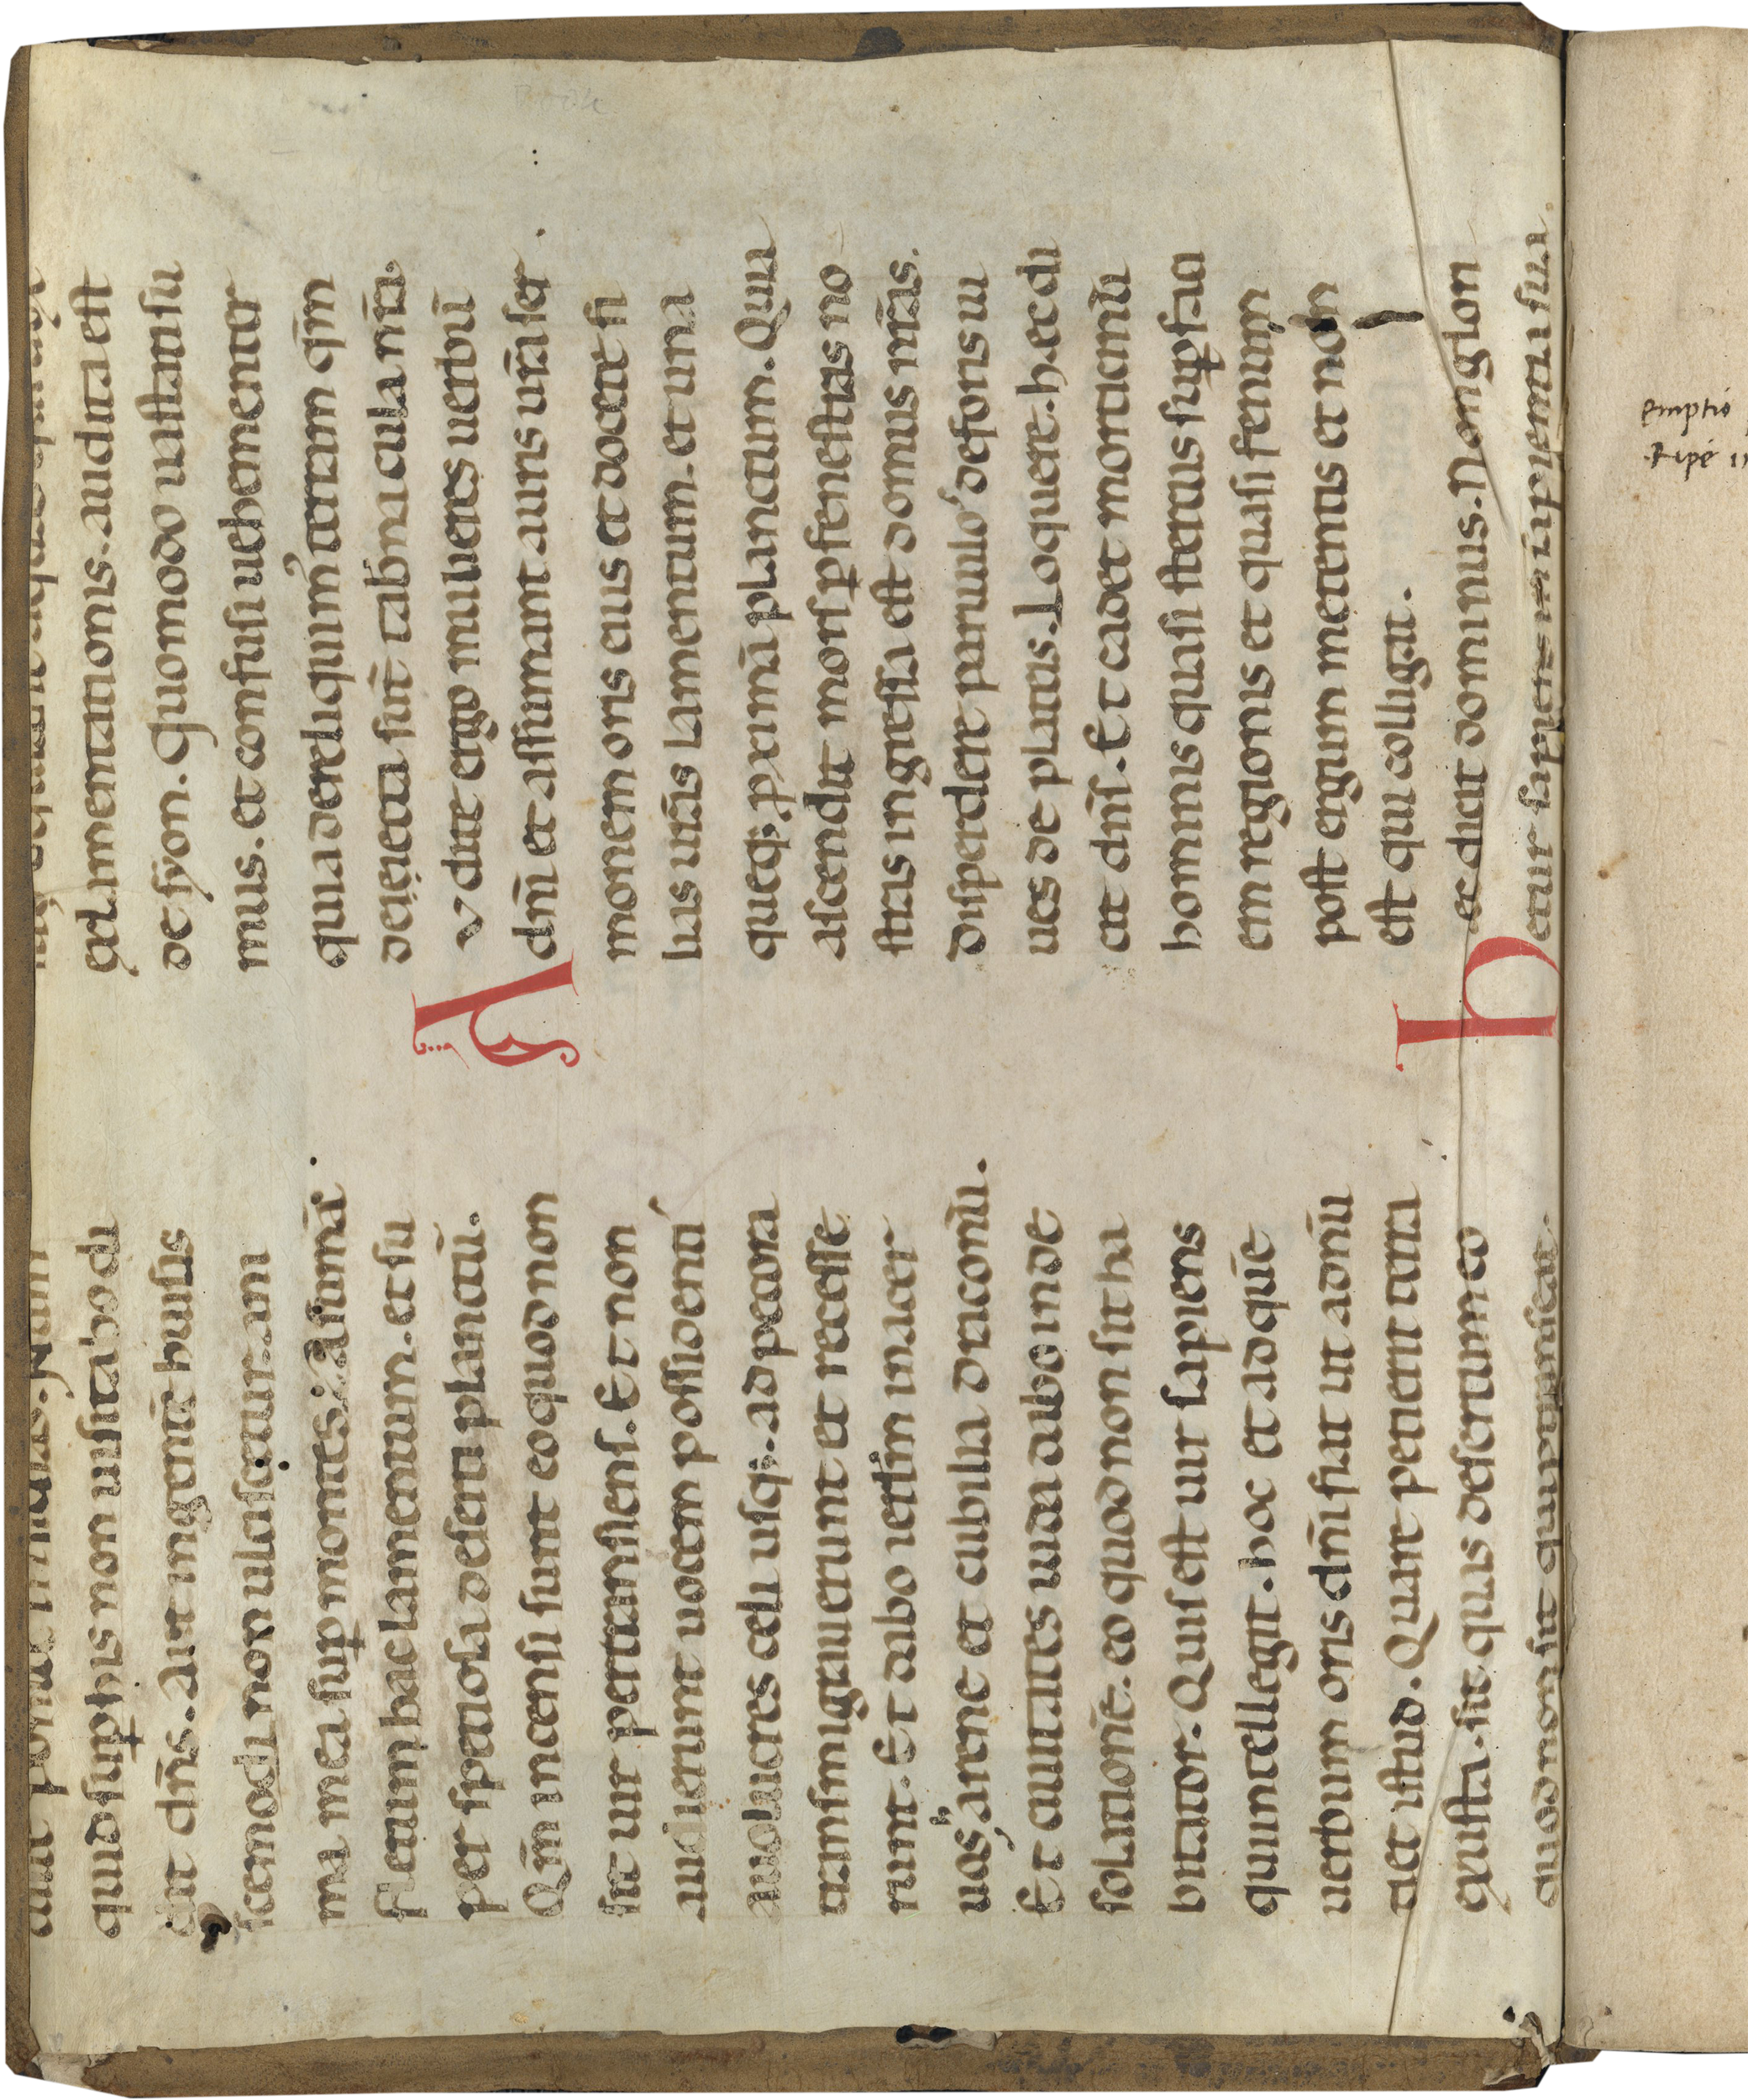 ponit insidias. Num
quid sup̄ his non uisitabo di
cit dn̄s. Aut in gente huius
scemodi non ulciscetur. ani
ma mea sup̄ montes: Assumā
fletum hac lamentum. et su
per speciosa deserti planctū.
Qm̄ incensi sunt eo quod non
sit uir pertransiens. Et non
audierunt uocem possidenti
a uolucres celi usq; ad pecora
transmigrauerunt et recesse
runt. Et dabo ierl̄m in acer
uos arene et cubilia draconū.
Et ciuitates iuda dabo in de
solationē. eo quod non sit ha
bitator. Quis est uir sapiens
qui intellegit. hoc et ad quē
uerbum oris dn̄i fiat ut adnū
ciet istud. Quare perierit terra
exusta. sit quis desertum eo
quod non sit qui ptranseat.
lamentationis. audita est
de syon. Quomodo uastati su
mus. et confusi uehementer
quia dereliquim' terram qm̄
deiecta sunt tabnacula nr̄a.
Audite ergo mulieres uerbū
dn̄i et assumant auris ur̄a ser
monem oris eius et docete fi
lias ur̄as lamentum. et una
queq; pximā planctum. Quia
ascendit mors p fenestras no
stras ingressa est domus nr̄as.
disperdere paruulo' deforis iu
ues de plateis. Loquere. hec di
cit dn̄s. Et cadet morticinū
hominis quasi stercus sup̄ faci
em regionis et quasi fenum
post ergum metentis et non
est qui colligat.
hec dicit dominus. Non glori
etur sapiens in sapientia sua.
emptio
Ripe